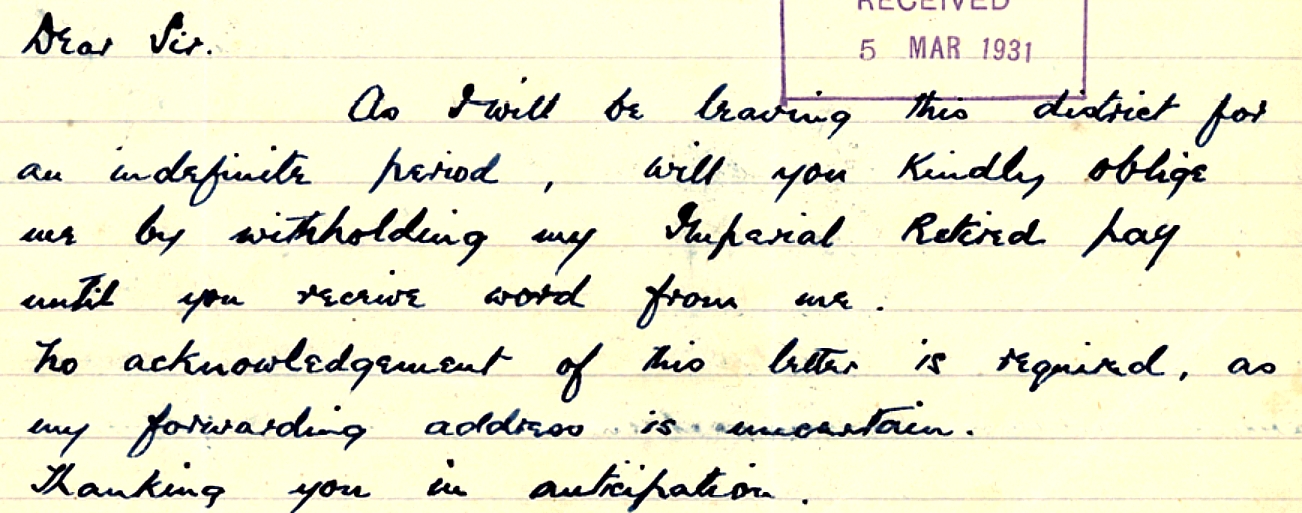 RECEIVED
5 MAR 1931
Dear Sir.
As I will be leaving this district for
an indefinite period, will you kindly oblige
me by withholding my Imperial Retired pay
until you receive word from me.
No acknowledgement of this letter is required, as
my forwarding address is uncertain.
Thanking you in anticipation.